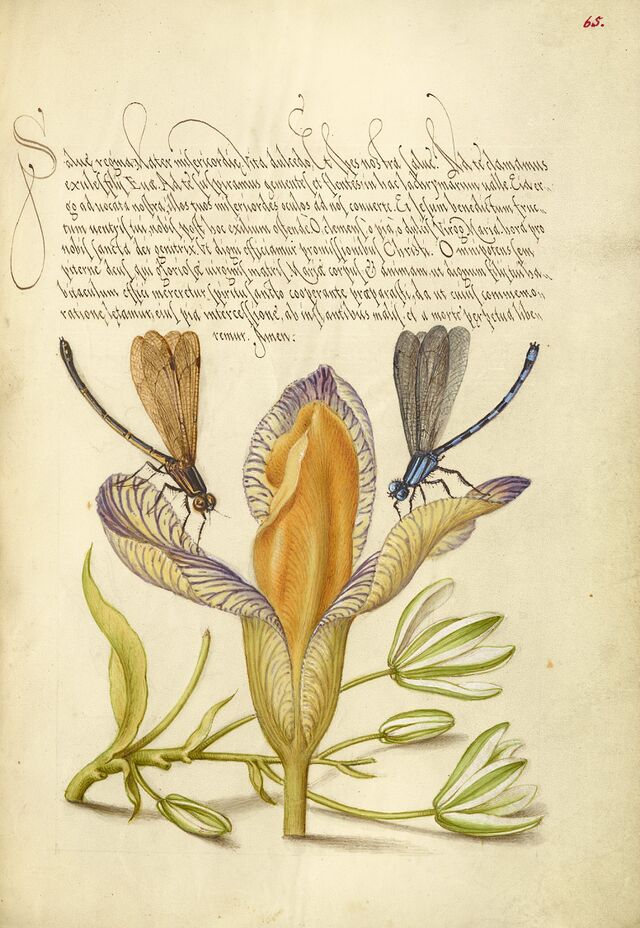 65.
Salue regina Mater misericordie vita dulcedo Et spes nostra salue. Ad te clamamus
exules filij Euæ. Ad te suspiramus gementes et flentes in hac lachrymarum ualle Eia er-
go aduocata nostra illos tuos misericordes oculos ad nos conuerte. Et Jesum benedictum fruc-
tum uentris tui, nobis post hoc exilium ostende. O clemens o pia, o dulcis Virgo Maria. hora pro
nobis sancta dei genitrix Vt digni efficiamur promissionibus Christi. Omnipotens sem-
piterne deus qui gloriosæ uirginis matris Mariæ corpus et animam ut dignum filij tui ha-
bitaculum effici mereretur spiritu sancto cooperante præparasti: da ut cuius commemo-
ratione letamur, eius pia intercessione, ab instantibus malis, et a morte perpetua libe-
remur. Amen: